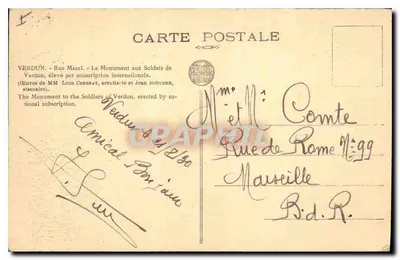 CARTE POSTALE
VERDUN. - Rue Mazel. - Le Monument aux Soldats de
Verdun, élevé par souscription internationale.
(Œuvres de MM Léon CHESNAY, architecte et Jean BOUCHER,
statuaire).
The Monument to the Soldiers of Verdun, erected by na-
tional subscription.
Verdun le 2/8/30
Amical
Mme et Mr Comte
Rue de Rome No 99
Marseille
B.d.R.